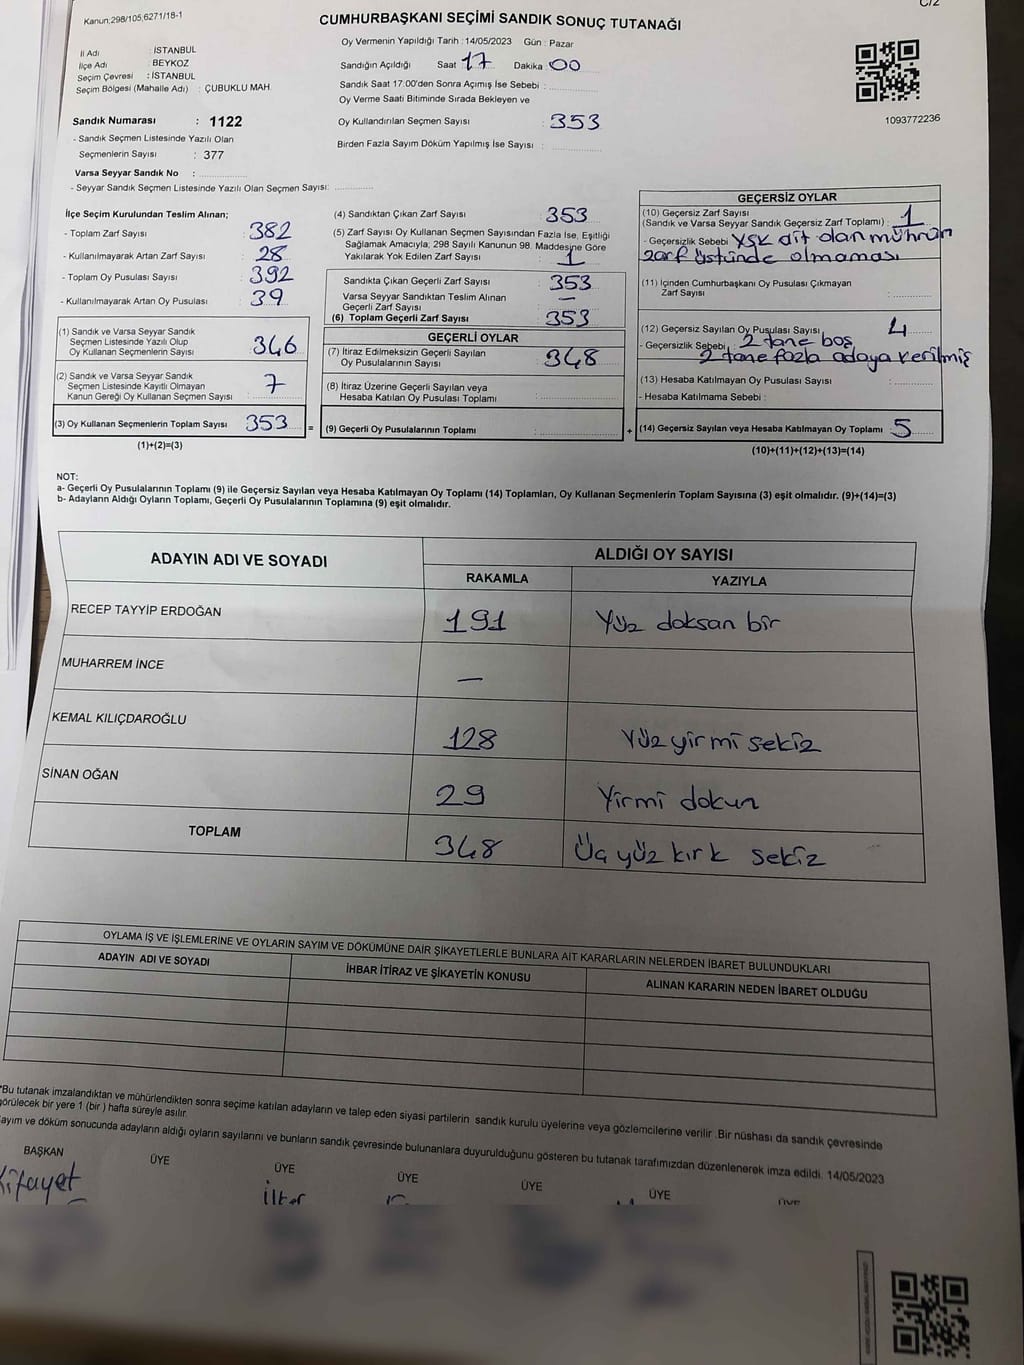 C/2
Kanun;298/105,6271/18-1
CUMHURBAŞKANI SEÇİMİ SANDIK SONUÇ TUTANAĞI
İl Adı : İSTANBUL
İlçe Adı : BEYKOZ
Seçim Çevresi : İSTANBUL
Seçim Bölgesi (Mahalle Adı) : ÇUBUKLU MAH.
Sandık Numarası : 1122
- Sandık Seçmen Listesinde Yazılı Olan
Seçmenlerin Sayısı : 377
Varsa Seyyar Sandık No :
- Seyyar Sandık Seçmen Listesinde Yazılı Olan Seçmen Sayısı:
Oy Vermenin Yapıldığı Tarih : 14/05/2023 Gün : Pazar
Sandığın Açıldığı Saat 17 Dakika 00
Sandık Saat 17:00'den Sonra Açımış İse Sebebi :
Oy Verme Saati Bitiminde Sırada Bekleyen ve
Oy Kullandırılan Seçmen Sayısı : 353
Birden Fazla Sayım Döküm Yapılmış İse Sayısı :
1093772236
İlçe Seçim Kurulundan Teslim Alınan;
- Toplam Zarf Sayısı : 382
- Kullanılmayarak Artan Zarf Sayısı : 28
- Toplam Oy Pusulası Sayısı : 392
- Kullanılmayarak Artan Oy Pusulası : 39
(1) Sandık ve Varsa Seyyar Sandık
Seçmen Listesinde Yazılı Olup
Oy Kullanan Seçmenlerin Sayısı : 346
(2) Sandık ve Varsa Seyyar Sandık
Seçmen Listesinde Kayıtlı Olmayan
Kanun Gereği Oy Kullanan Seçmen Sayısı : 7
(3) Oy Kullanan Seçmenlerin Toplam Sayısı 353
(1)+(2)=(3)
(4) Sandıktan Çıkan Zarf Sayısı : 353
(5) Zarf Sayısı Oy Kullanan Seçmen Sayısından Fazla İse, Eşitliği
Sağlamak Amacıyla; 298 Sayılı Kanunun 98. Maddesine Göre
Yakılarak Yok Edilen Zarf Sayısı : 1
Sandıkta Çıkan Geçerli Zarf Sayısı : 353
Varsa Seyyar Sandıktan Teslim Alınan
Geçerli Zarf Sayısı : —
(6) Toplam Geçerli Zarf Sayısı : 353
GEÇERLİ OYLAR
(7) İtiraz Edilmeksizin Geçerli Sayılan
Oy Pusulalarının Sayısı : 348
(8) İtiraz Üzerine Geçerli Sayılan veya
Hesaba Katılan Oy Pusulası Toplamı :
= (9) Geçerli Oy Pusulalarının Toplamı :
GEÇERSİZ OYLAR
(10) Geçersiz Zarf Sayısı
(Sandık ve Varsa Seyyar Sandık Geçersiz Zarf Toplamı) : 1
- Geçersizlik Sebebi YSK ait olan mührün
zarf üstünde olmaması
(11) İçinden Cumhurbaşkanı Oy Pusulası Çıkmayan
Zarf Sayısı :
(12) Geçersiz Sayılan Oy Pusulası Sayısı 4
- Geçersizlik Sebebi : 2 tane boş
2 tane fazla adaya verilmiş
(13) Hesaba Katılmayan Oy Pusulası Sayısı :
- Hesaba Katılmama Sebebi :
+ (14) Geçersiz Sayılan veya Hesaba Katılmayan Oy Toplamı : 5
(10)+(11)+(12)+(13)=(14)
NOT:
a- Geçerli Oy Pusulalarının Toplamı (9) ile Geçersiz Sayılan veya Hesaba Katılmayan Oy Toplamı (14) Toplamları, Oy Kullanan Seçmenlerin Toplam Sayısına (3) eşit olmalıdır. (9)+(14)=(3)
b- Adayların Aldığı Oyların Toplamı, Geçerli Oy Pusulalarının Toplamına (9) eşit olmalıdır.
ADAYIN ADI VE SOYADI ALDIĞI OY SAYISI
RAKAMLA YAZIYLA
RECEP TAYYİP ERDOĞAN 191 Yüz doksan bir
MUHARREM İNCE —
KEMAL KILIÇDAROĞLU 128 Yüz yirmi sekiz
SİNAN OĞAN 29 Yirmi dokun
TOPLAM 348 Üç yüz kırk sekiz
OYLAMA İŞ VE İŞLEMLERİNE VE OYLARIN SAYIM VE DÖKÜMÜNE DAİR ŞİKAYETLERLE BUNLARA AİT KARARLARIN NELERDEN İBARET BULUNDUKLARI
ADAYIN ADI VE SOYADI İHBAR İTİRAZ VE ŞİKAYETİN KONUSU ALINAN KARARIN NEDEN İBARET OLDUĞU
*Bu tutanak imzalandıktan ve mühürlendikten sonra seçime katılan adayların ve talep eden siyasi partilerin sandık kurulu üyelerine veya gözlemcilerine verilir .Bir nüshası da sandık çevresinde
görülecek bir yere 1 (bir ) hafta süreyle asılır.
Sayım ve döküm sonucunda adayların aldığı oyların sayılarını ve bunların sandık çevresinde bulunanlara duyurulduğunu gösteren bu tutanak tarafımızdan düzenlenerek imza edildi. 14/05/2023
BAŞKAN ÜYE ÜYE ÜYE ÜYE ÜYE ÜYE
Kifayet İlter